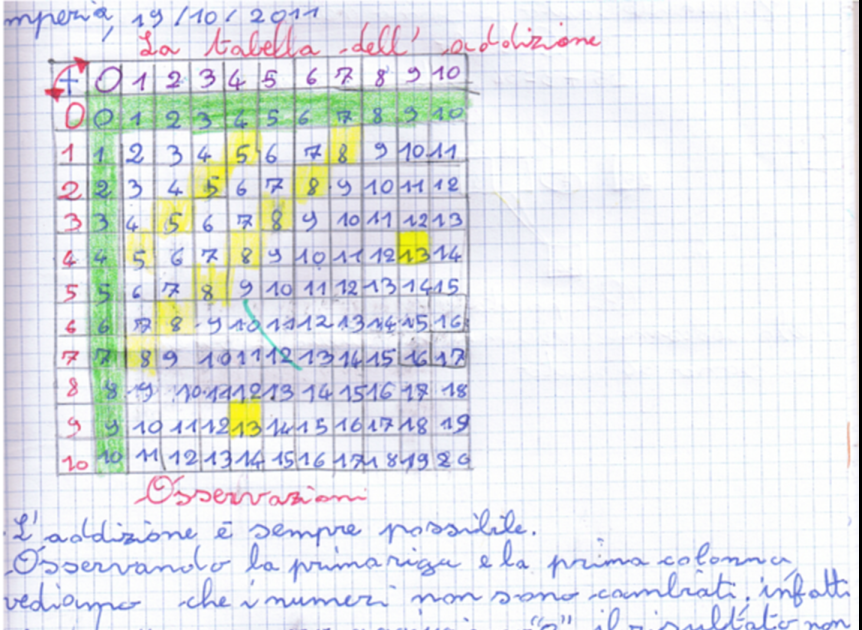 mperia, 19/10/2011
La tabella dell' addizione
+ 0 1 2 3 4 5 6 7 8 9 10
0 0 1 2 3 4 5 6 7 8 9 10
1 1 2 3 4 5 6 7 8 9 10 11
2 2 3 4 5 6 7 8 9 10 11 12
3 3 4 5 6 7 8 9 10 11 12 13
4 4 5 6 7 8 9 10 11 12 13 14
5 5 6 7 8 9 10 11 12 13 14 15
6 6 7 8 9 10 11 12 13 14 15 16
7 7 8 9 10 11 12 13 14 15 16 17
8 8 9 10 11 12 13 14 15 16 17 18
9 9 10 11 12 13 14 15 16 17 18 19
10 10 11 12 13 14 15 16 17 18 19 20
Osservazioni
L'addizione è sempre possibile.
Osservando la prima riga e la prima colonna
vediamo che i numeri non sono cambiati, infatti
"0" il risultato non